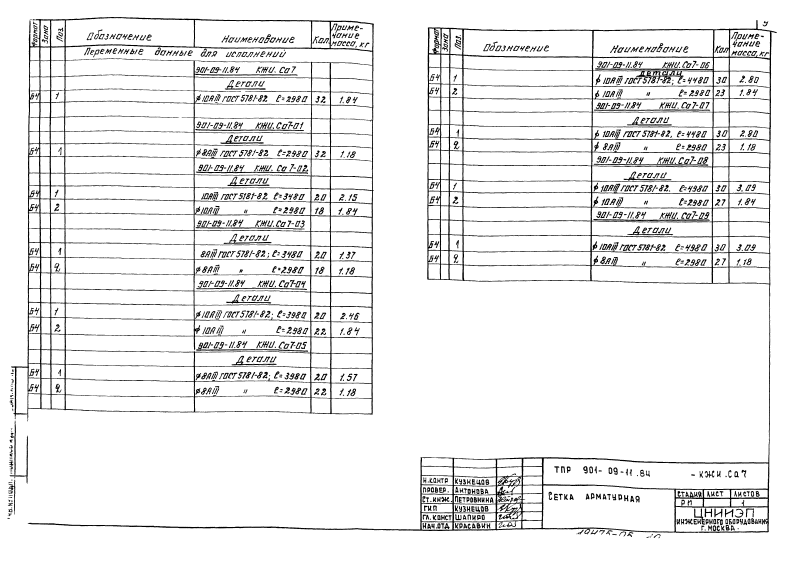 Формат Зона Поз. Обозначение Наименование Кол. Приме-чание масса, кг
Переменные данные для исполнений
901-09-11.84 КЖИ. Са7
Детали
Б4 1 φ10АIII ГОСТ 5781-82 ℓ=2980 32 1.84
901-09-11.84 КЖИ. Са7-01
Детали
Б4 1 φ8АIII ГОСТ 5781-82 ℓ=2980 32 1.18
901-09-11.84 КЖИ. Са7-02
Детали
Б4 1 10АIII ГОСТ 5781-82 ℓ=3480 20 2.15
Б4 2 φ10АIII " ℓ=2980 18 1.84
901-09-11.84 КЖИ. Са7-03
Детали
1 8АIII ГОСТ 5781-82; ℓ=3480 20 1.37
Б4 2 φ8АIII " ℓ=2980 18 1.18
901-09-11.84 КЖИ. Са7-04
Детали
Б4 1 φ10АIII ГОСТ 5781-82; ℓ=3980 20 2.46
Б4 2 φ10АIII " ℓ=2980 22 1.84
901-09-11.84 КЖИ. Са7-05
Детали
Б4 1 φ8АIII ГОСТ 5781-82; ℓ=3980 20 1.57
Б4 2 φ8АIII " ℓ=2980 22 1.18
9
Формат Зона Поз. Обозначение Наименование Кол Приме-чание масса, кг
901-09-11.84 КЖИ. Са7-06
Детали
Б4 1 φ10АIII ГОСТ 5781-82; ℓ=4480 30 2.80
Б4 2 φ10АIII " ℓ=2980 23 1.84
901-09-11.84 КЖИ. Са7-07
Детали
Б4 1 φ10АIII ГОСТ 5781-82, ℓ=4480 30 2.80
Б4 2 φ8АIII " ℓ=2980 23 1.18
901-09-11.84 КЖИ. Са7-08
Детали
Б4 1 φ10АIII ГОСТ 5781-82. ℓ=4980 30 3.09
Б4 2 φ10АIII " ℓ=2980 27 1.84
901-09-11.84 КЖИ. Са7-09
Детали
Б4 1 φ10АIII ГОСТ 5781-82; ℓ=4980 30 3.09
Б4 2 φ8АIII " ℓ=2980 27 1.18
ТПР 901-09-11.84 -КЖИ.Са7
Н.контр Кузнецов
Провер. Антонова
Ст.инж. Петровнина
ГИП Кузнецов
Гл.конст Шапиро
Нач.отд Красавин
Сетка арматурная
Стадия Лист Листов
РП 1
ЦНИИЭП
инженерного оборудования
г. Москва.